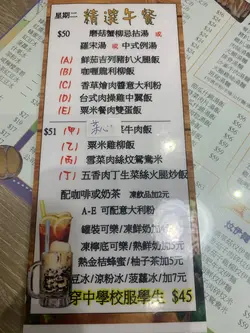 星期二 精選午餐
$50 蘑菇蟹柳忌廉湯
或
羅宋湯 或 中式例湯
(A) 鮮茄吉列豬扒火腿飯
(B) 咖喱龍利柳飯
(C) 香草燴肉醬意大利粉
(D) 台式肉燥雞中翼飯
(E) 粟米餐肉雙蛋飯
$51 (甲) 菜心 牛肉飯
(乙) 粟米雞柳飯
(丙) 雪菜肉絲炆鴛鴦米
(丁) 五香肉丁生菜絲火腿炒飯
配咖啡或奶茶 凍飲品加2元
A-E 可配意大利粉
罐裝可樂/凍鮮奶加
凍檸底可樂/熱鮮奶加5元
熱金桔蜂蜜/柚子茶加5元
豆冰/涼粉冰/菠蘿冰/加7元
穿中學校服學生 $45